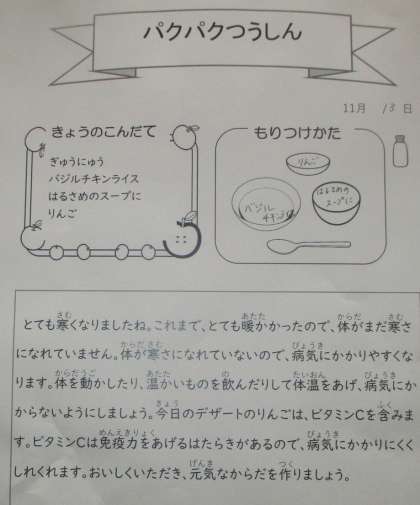 パクパクつうしん
11月 13日
きょうのこんだて
ぎゅうにゅう
バジルチキンライス
はるさめのスープに
りんご
もりつけかた
りんご
バジル
チキン
はるさめの
スープに
とても寒くなりましたね。これまで、とても暖かかったので、体がまだ寒さ
になれていません。体が寒さになれていないので、病気にかかりやすくな
ります。体を動かしたり、温かいものを飲んだりして体温をあげ、病気にか
からないようにしましょう。今日のデザートのりんごは、ビタミンCを含みま
す。ビタミンCは免疫力をあげるはたらきがあるので、病気にかかりにくく
しれくれます。おいしくいただき、元気なからだを作りましょう。